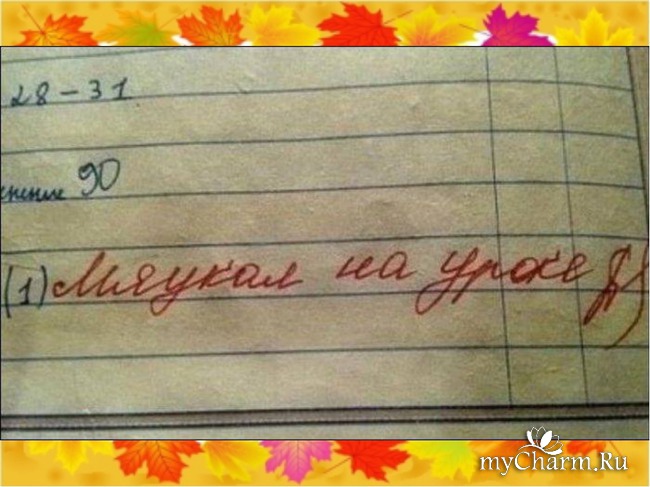 28-31
90
(1) Мяукал на уроке
myCharm.Ru